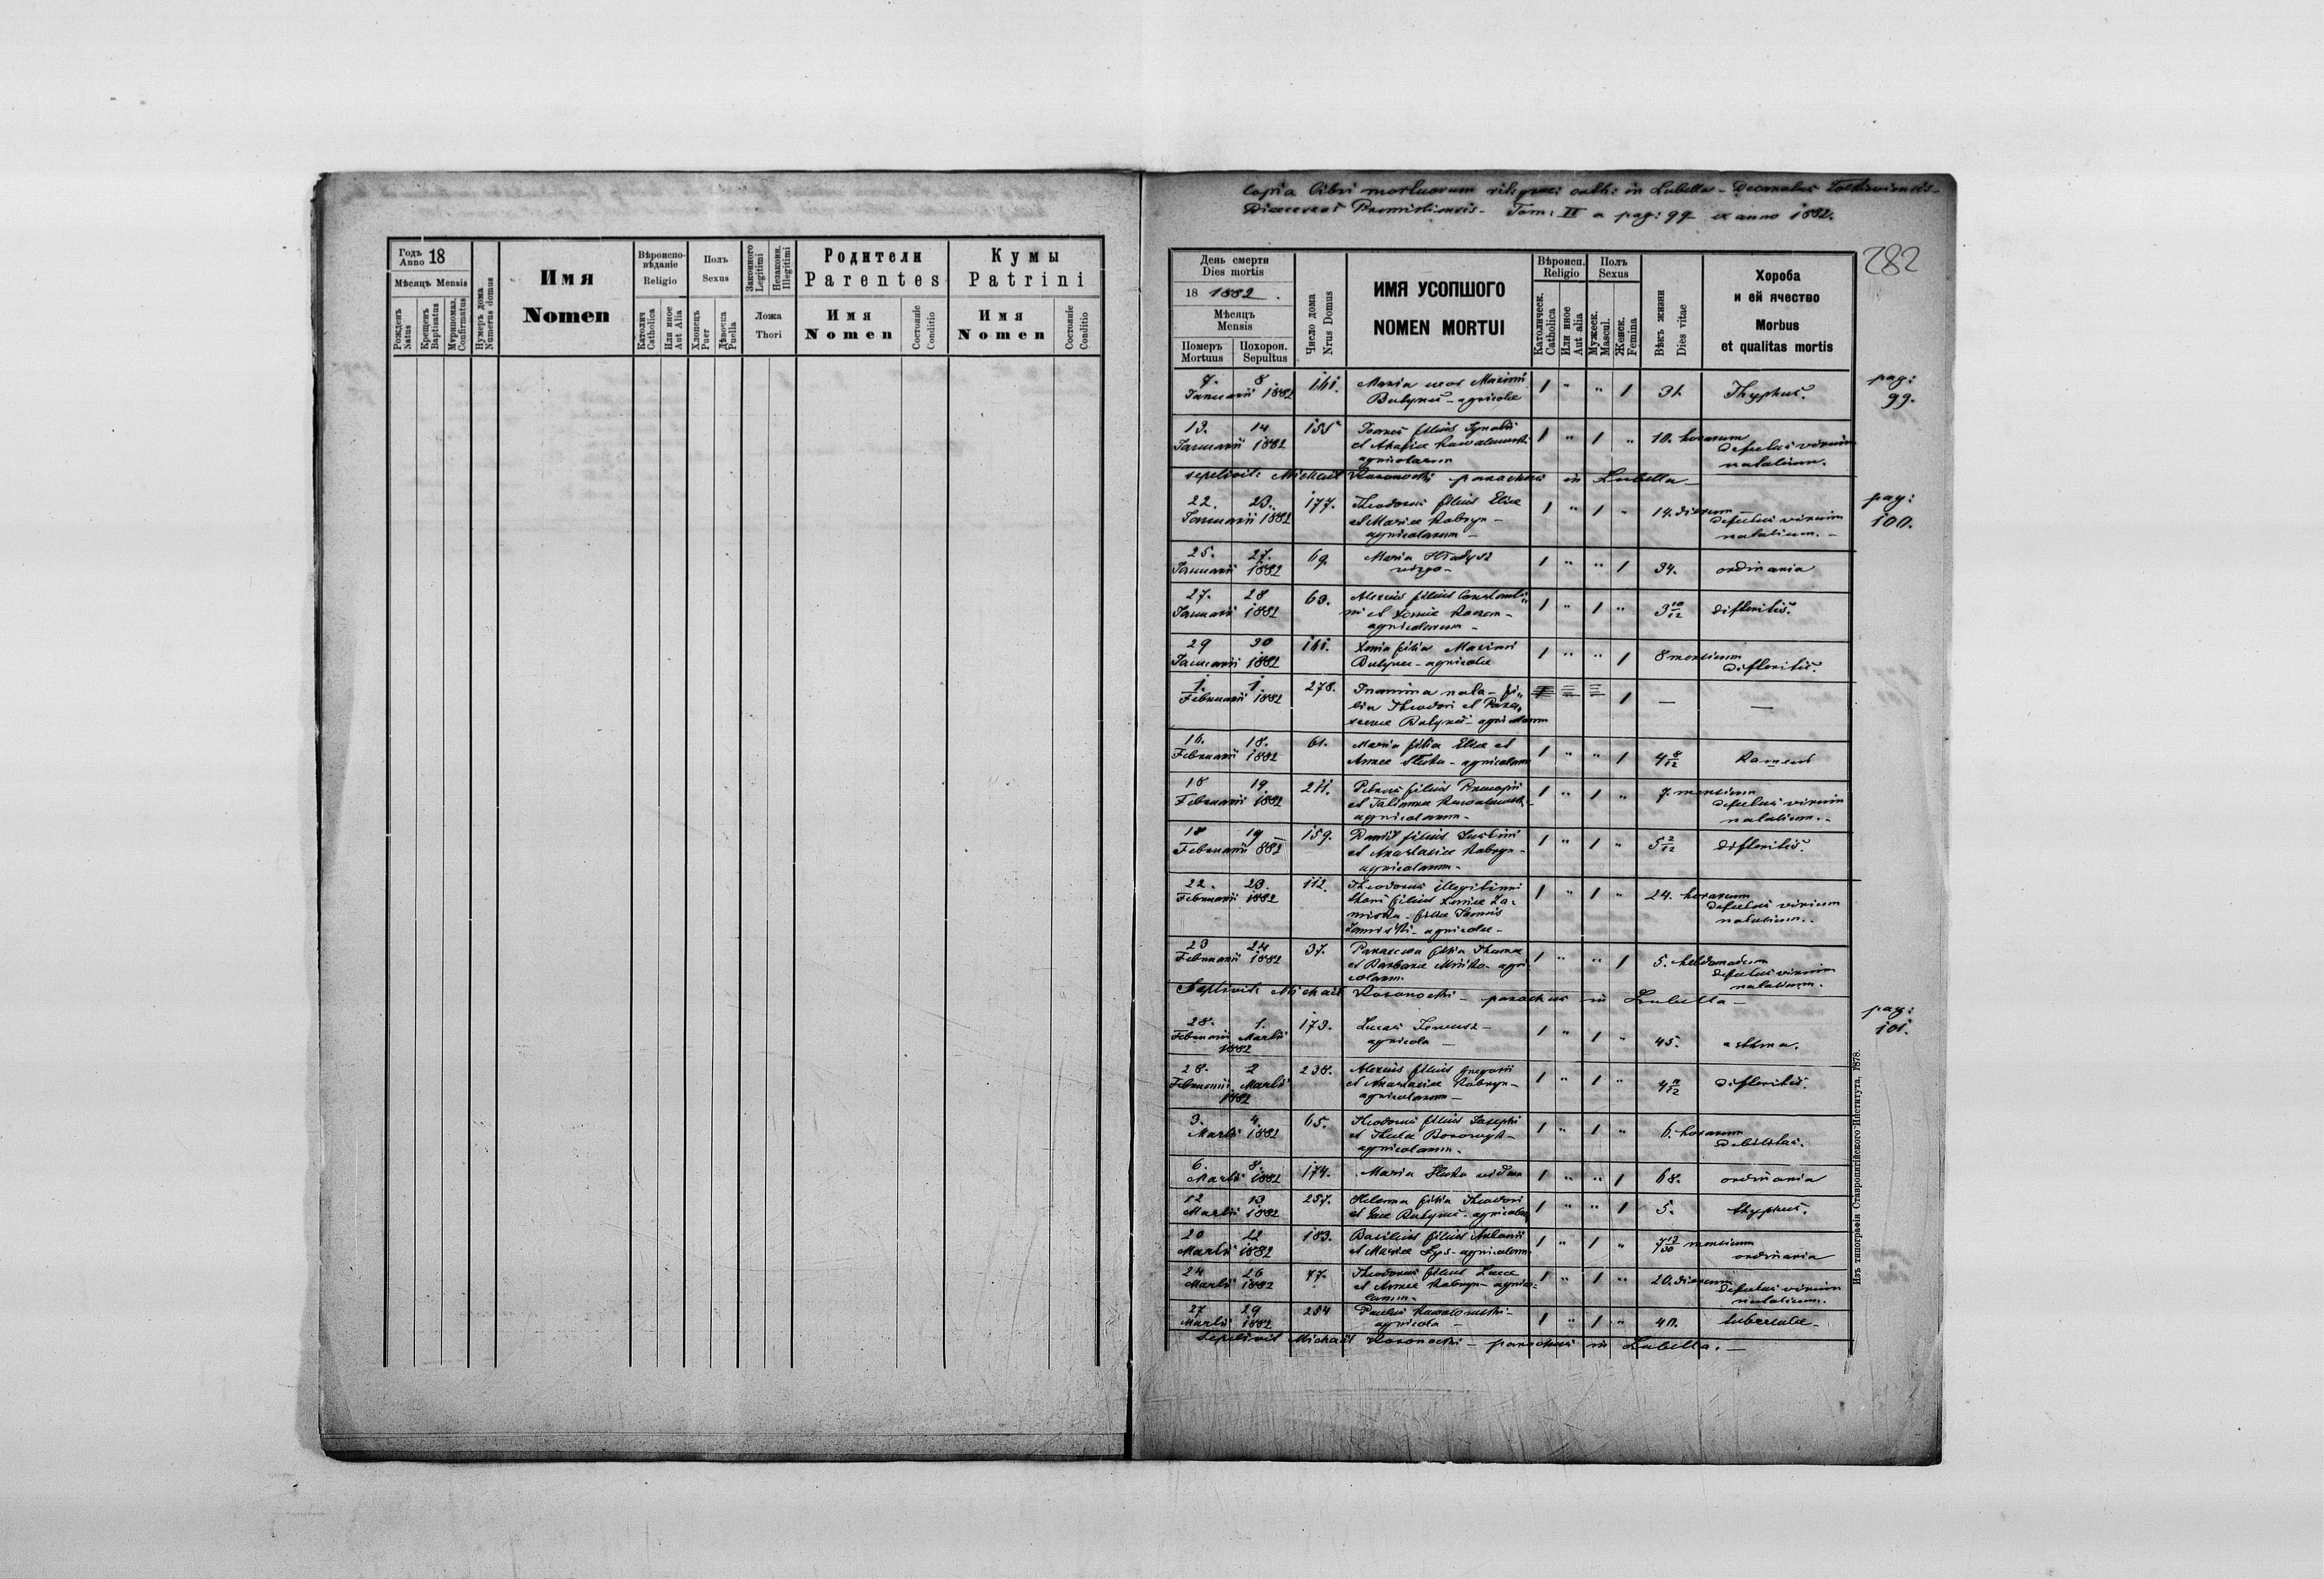 Copia libri mortuorum rit: graeci cath: in Lubella - Decanatus
Dioeceseos Premisliensis - Tom: II a pag: 99 ex anno 1882.
282
Годъ 18
Anno
Мѣсяцъ Mensis
Рожденъ
Natus
Крещенъ
Baptisatus
Мѵрипомаз.
Confirmatus
Нумеръ дома
Numerus domus
Имя
Nomen
Вѣроиспо-
вѣданіе
Religio
Католич
Catholica
Или иное
Aut Alia
Полъ
Sexus
Хлопецъ
Puer
Дѣвочка
Puella
Законного
Legitimi
Незаконн.
Illegitimi
Ложа
Thori
Родители
Parentes
Имя
Nomen
Состояніе
Conditio
Кумы
Patrini
Имя
Nomen
Состояніе
Conditio
День смерти
Dies mortis
18 1882.
Мѣсяцъ
Mensis
Померъ
Mortuus
Похорон.
Sepultus
Число дома
Nrus Domus
ИМЯ УСОПШОГО
NOMEN MORTUI
Вѣроисп.
Religio
Католическ.
Catholica
Или иное
Aut alia
Полъ
Sexus
Мужеск.
Mascul.
Женск.
Femina
Вѣкъ жизни
Dies vitae
Хороба
и ей ячество
Morbus
et qualitas mortis
7. 8 161. Maria uxor Maximi 1 " " 1 Thyphus. pag:
Januarii 1882 Butynec - agricolae 99.
13. 14 155 Joannes filius Ignatii 1 " 1 " 10. horarum
Januarii 1882 et Kowalewski defectus virium
agricolarum natalium.
sepelivit Michael Kosonocki parochus in Lubella -
22. 23. 177. Theodorus filius Eliae 1 " 1 " 14. dierum pag:
Januarii 1882 et Mariae Kobryn - defectus virium 100.
agricolarum - natalium. -
25. 27. 69. Maria 1 " " 1 34. ordinaria
Januarii 1882 virgo -
27. 28 63. Alexius filius Constanti= 1 " 1 " 3 10/12 difteritis.
Januarii 1882 ni et Xeniae -
agricolarum -
29 30 161. Xenia filia Maximi 1 " " 1 8 mensium
Januarii 1882 Butynec - agricolae Difteritis.
1. 1 278. Inanima nata - fi= 1 — —
Februarii 1882 lia Theodori et Paras=
cevae Butynec - agricolarum
16. 18. 61. Maria filia Eliae et 1 " " 1 4 8/12
Februarii 1882 Annae - agricolarum
18 19. 211. Petrus filius Procopii 1 " 1 " 7. mensium
Februarii 1882 et Tatianae Kowalewski - defectus virium
agricolarum - natalium. -
18 19 159. Daniel filius Justini 1 " 1 " 5 2/12 difteritis.
Februarii 882 et Anastasiae Kobryn -
agricolarum -
22. 23. 112. Theodorus illegitimi 1 " 1 " 24. horarum
Februarii 1882 thori filius Xeniae defectus virium
filiae Joannis natalium.
agricolae -
23 24 37. Parasceva filia Thomae 1 " " 1 5. hebdomadum
Februarii 1882 et Barbarae - agri defectus virium
colarum. natalium.
Sepelivit Michael Kosonocki - parochus in Lubella -
28. 1. 173. Lucas 1 " 1 " 45. asthma. pag:
Februarii Martii agricola - 101.
1882
28. 2 238. Alexius filius Gregorii 1 " 1 " 4 11/12 Difteritis.
Februarii Martii et Anastasiae Kobryn -
1882 agricolarum -
3. 4. 65. Theodorus filius Josephi 1 " 1 " 6. horarum
Martii 1882 et Theclae - Debilitas.
agricolarum.
6. 8. 174. Maria vidua 1 " " 1 68. ordinaria
Martii 1882
12 13 257. Helena filia Theodori 1 " " 1 5. thyphus.
Martii 1882 et Evae Butynec - agricolarum
20 22 183. Basilius filius Antonii 1 " 1 " 7 13/30 mensium
Martii 1882 et Mariae Lys - agricolarum ordinaria
24 26 77. Theodorus filius Lucae 1 " 1 " 20. dierum
Martii 1882 et Annae Kobryn - agrico- defectus virium
larum. natalium.
27 29 254 Paulus Kowalewski - 1 " 1 " 40. tuberculae -
Martii 1882 agricola -
sepelivit Michael Kosonocki - parochus in Lubella. -
Изъ типографіи Ставропигійского Института, 1878.